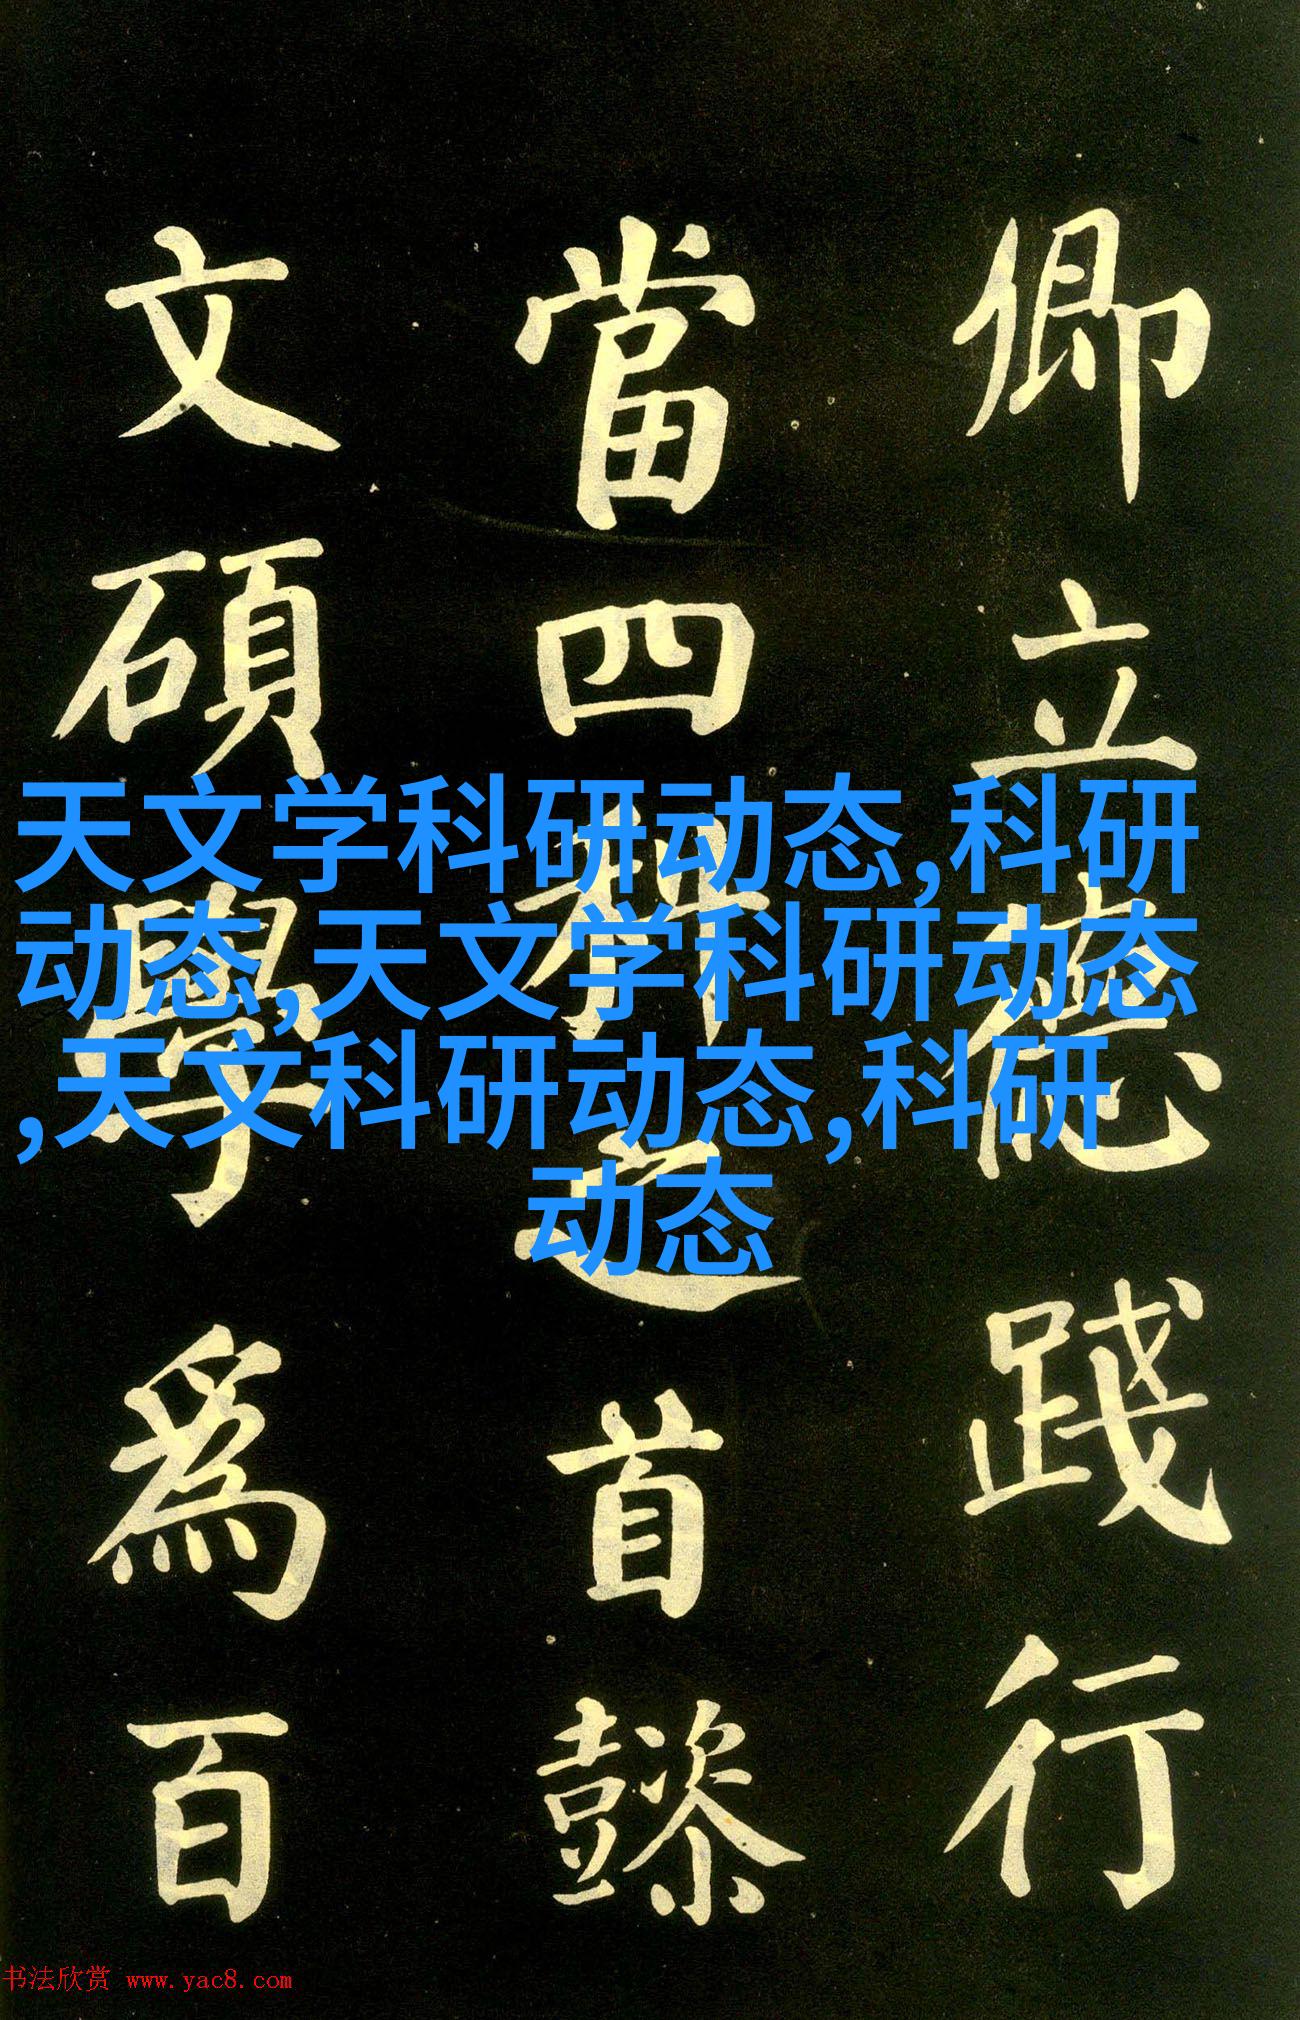 卿立德踐行
當四科之首懿
文碩學爲百
天文学科研动态,科研
动态,天文学科研动态
,天文科研动态,科研
动态
书法欣赏 www.yac8.com